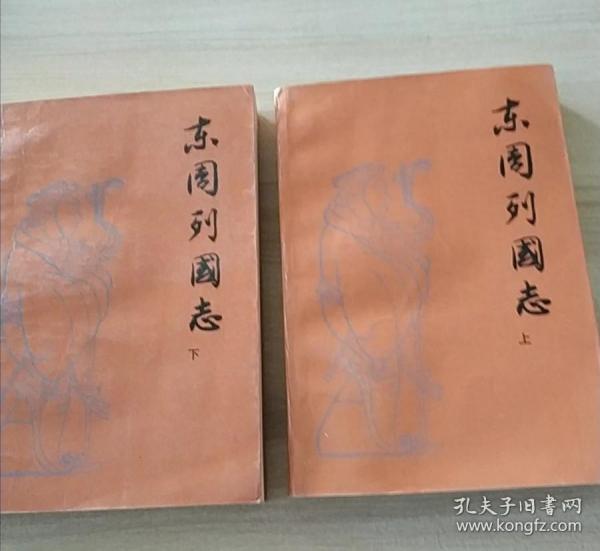 东周列國志
下
东周列國志
上
孔夫子旧書网
www.kongfz.com